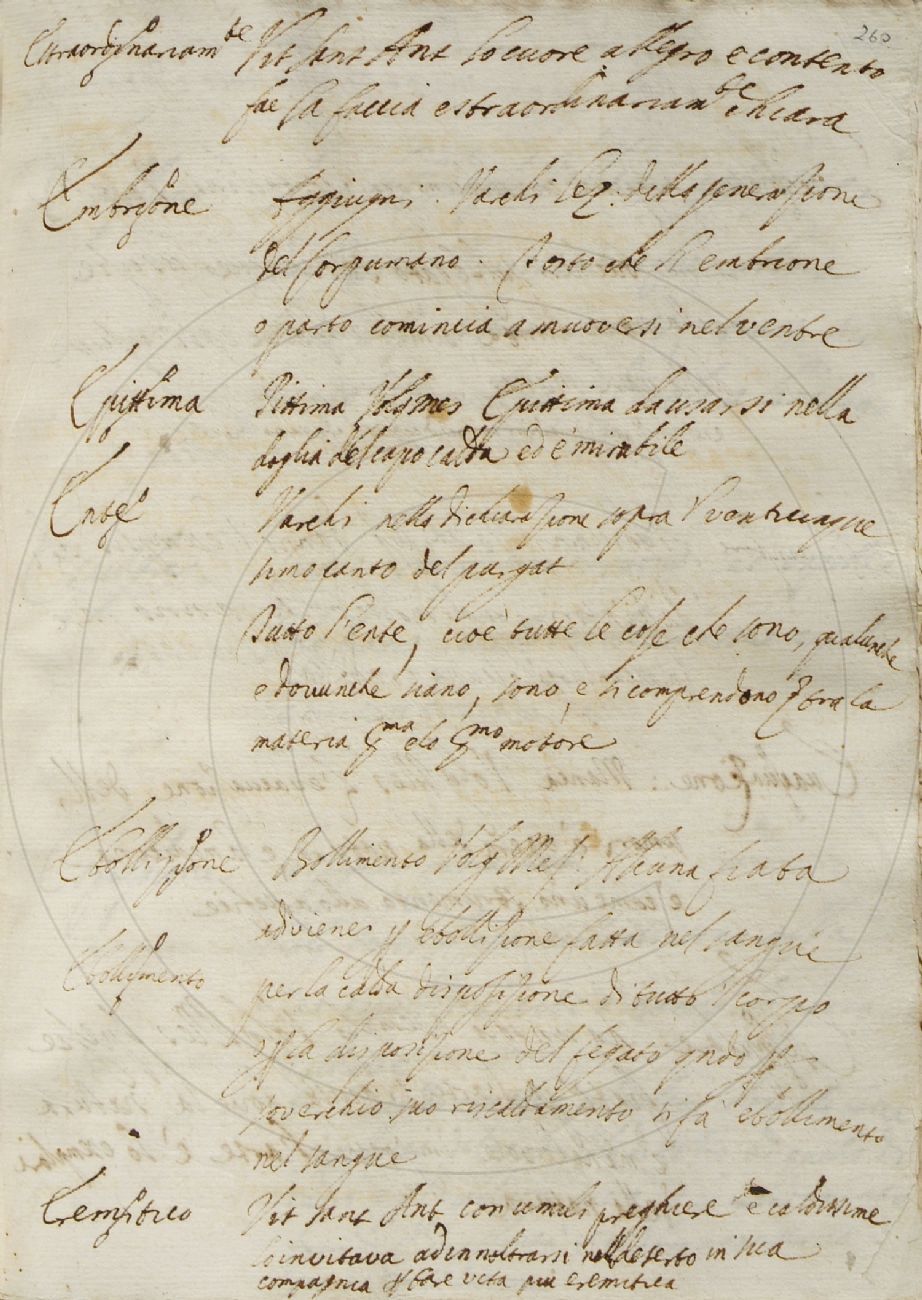 260
Estraordinariam.te Vit Sant Ant Lo cuore allegro e contento
fae la faccia estraordinariam.te chiara
Embrione Aggiugni. Varchi Lez. della generazione
del Corpo umano. Tosto che l'embrione
o parto comincia a muoversi nel ventre
Epittima Pittima Volg mes Epittima da usarsi nella
doglia del capo calda ed è mirabile
Ente Varchi nella dichiarazione sopra l venticinque
simo canto del purgat
Tutto l'ente, cioè tutte le cose che sono, qualunche
e dovunche siano, sono, e si comprendono tra la
materia pma e lo pmo motore
Ebollizione Bollimento Volg Mes. Alcuna fiata
adviene p ebollizione fatta nel sangue
Ebollimento per la calda disposizione di tutto l corpo
p la disposizione del fegato qndo p
soverchio suo riscaldamento si fa ebollimento
nel sangue
Eremitico Vit Sant Ant con umili preghiere e caldissime
lo invitava ad innoltrarsi nel deserto in sua
compagnia p fare vita piu eremitica